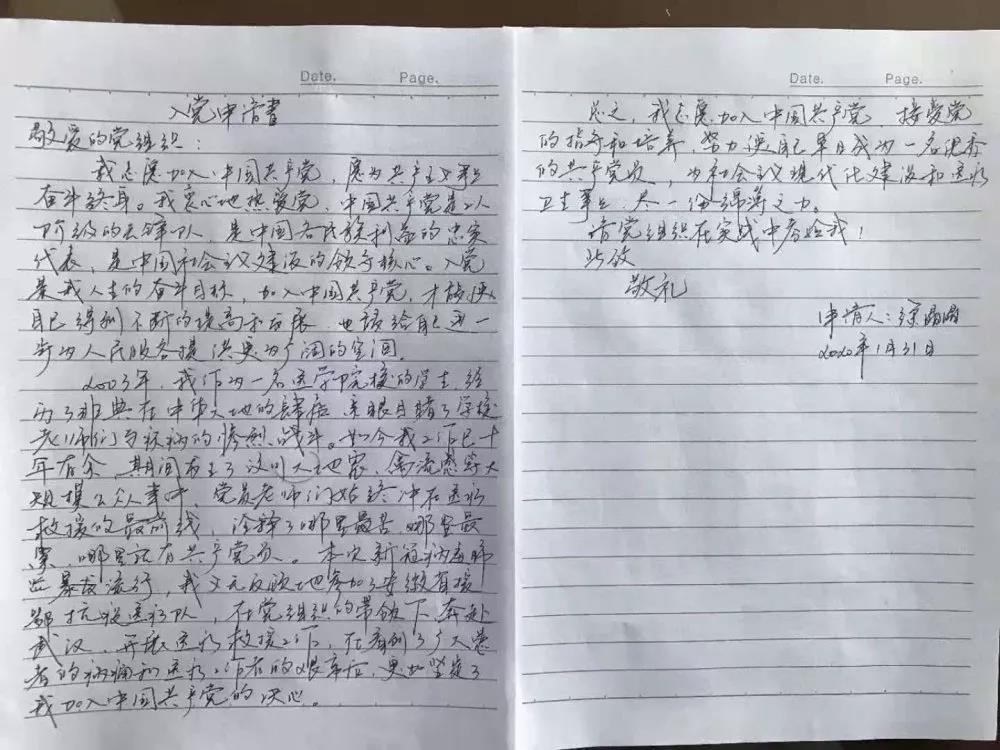 Date. Page.
入党申请書
敬爱的党组织：
我志愿加入中国共产党，愿为共产主义事业
奋斗终身。我衷心地热爱党，中国共产党是工人
阶级的先锋队，是中国各民族利益的忠实
代表，是中国社会主义建设的领导核心。入党
是我人生的奋斗目标，加入中国共产党，才能使
自己得到不断的提高和发展，也该给自己进一
步为人民服务提供更为广阔的空间。
2003年，我作为一名医学院校的学生，经
历了非典在中华大地的肆虐，亲眼目睹了学校
老师们与疾病的惨烈战斗。如今我工作已十
年有余，其期间发生了汶川大地震、禽流感等大
规模公众事件，党员老师们始终冲在医疗
救援的最前线，诠释了哪里最苦、哪里最
累，哪里就有共产党员。本次新冠病毒肺
炎暴发流行，我义无反顾地参加了安徽省援
鄂抗疫医疗队，在党组织的带领下，奔赴
武汉，开展医疗救援工作，在看到了广大患
者的病痛和医疗工作者的艰辛后，更加坚定了
我加入中国共产党的决心。
Date. Page.
总之，我志愿加入中国共产党，接受党
的指导和培养，努力使自己早日成为一名优秀
的共产党员，为社会主义现代化建设和医疗
卫生事业，尽一份绵薄之力。
请党组织在实战中考验我！
此致
敬礼
申请人：
2020年1月31日